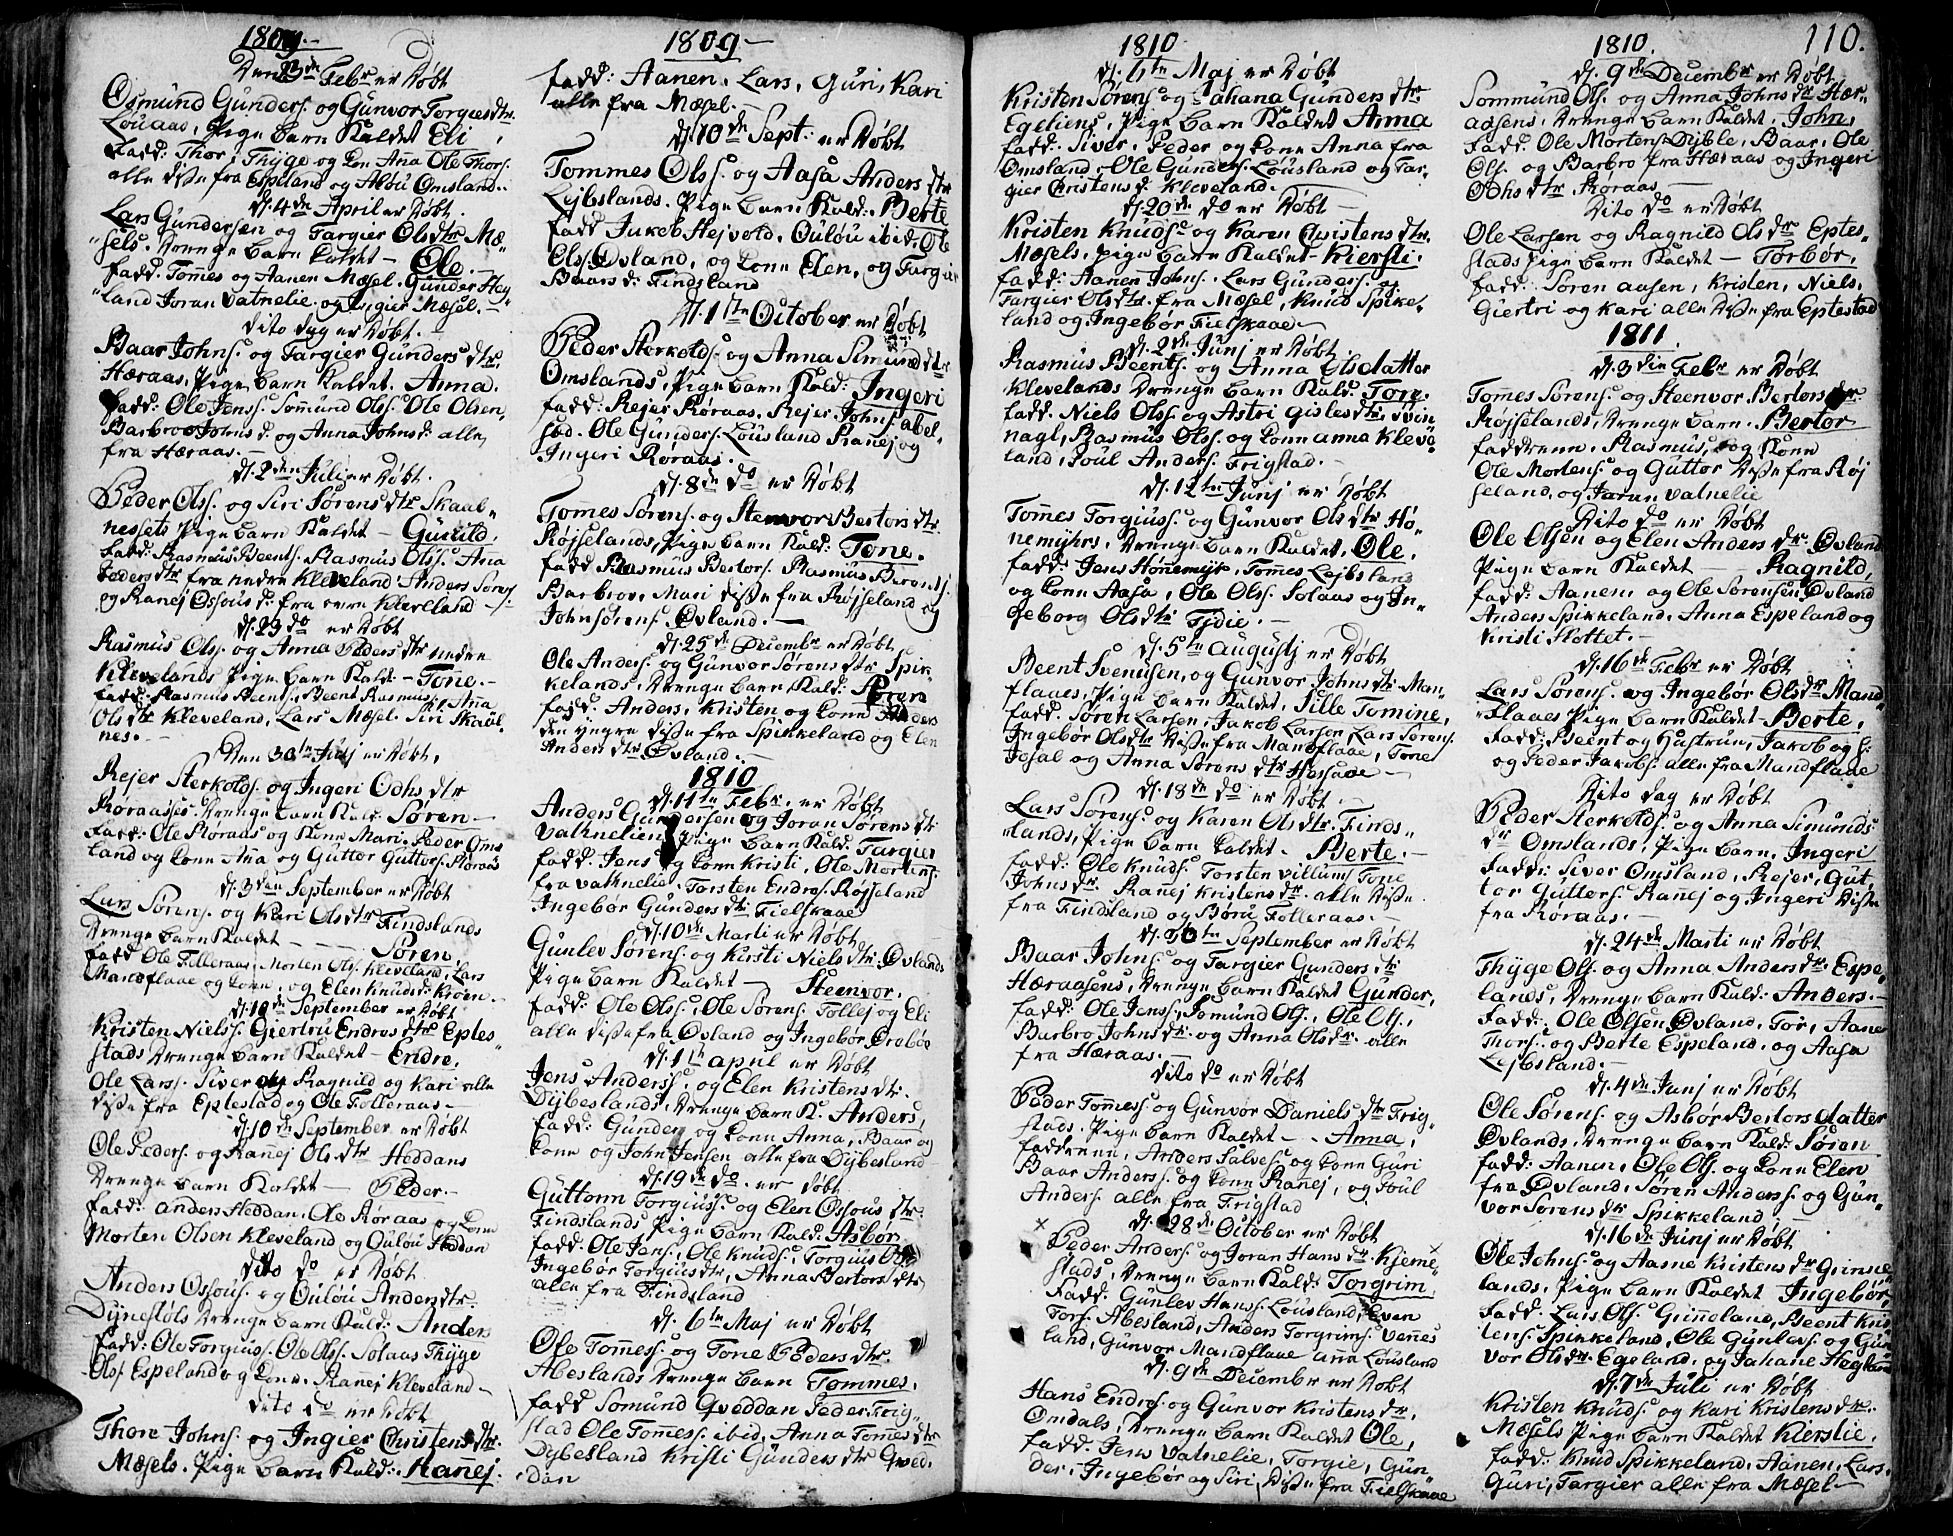 1809.
Den 23de Febr er Døbt
Osmund Gunders. og Gunvor Torgies dtr.
Løuaas, Pige barn Kaldet Eli
fadd: Thor, Thyge og kone Ana Ole Thors.
alle disse fra Espeland og Aløu Omsland.
d. 4de April er Døbt.
Lars Gundersen og Targier Olsdtr Mæ-
sels. Drenge barn kaldet - Ole.
fadd: Tommes og Aanen Mæsel. Gunder Hey-
land Joran Vatnelie og Ingier Mæsel.
Dito dag er Døbt.
Baar Johns. og Targier Gunders dtr.
Hæraas, Pige barn kaldet. Anna.
fadd: Ole Jenss. Sommund Olss. Ole Olsen,
Barbroe Johns d. og Anna Johns d. alle
fra Hæraas.
d. 2den Juli er Døbt.
Peder Olss. og Siri Sørens dtr Skaal-
nessets Pige barn Kaldet - Gunild.
fadd: Rasmus Beents. Rasmus Olss. Ana
Peders dtr fra nedre Kleveland Anders Sørens.
og Ranej Ossous d: fra øvre Kleveland
d. 23 do er Døbt
Rasmus Olss. og Anna Peders dtr nedre
Klevelands Pige barn Kald: - Tone.
fadd: Rasmus Beents. Beent Rasmus. Ana
Ols dtr Kleveland, Lars Mæsel. Siri Skaal-
nes.
Den 30te Julj er Døbt.
Rejer Sterkolds. og Ingeri Odhs dtr
Roraases. Drenge barn Kald: Søren
fadd: Ole Roraas og Kone Mari. Peder Oms-
land og kone Ana og Guttor Guttors. Roraas
d. 3den September er Døbt
Lars Sørens. og Kari Olsdtr Findslands
Drenge barn Kaldet - Søren.
fadd Ole Folleraas, Morten Olss. Kleveland, Lars
Mandflaae og kone, og Elen Knuds d: Krøen.
d. 10de September er Døbt
Kristen Nielss. Giertru Endres dtr Eptes-
stads Drenge barn Kaldet - Endre.
Ole Larss. Siver og Ragnild og Kari alle
disse fra Eptestad og Ole Folleraas
d. 10de September er Døbt
Ole Peders. og Ranej Ols dtr Heddans
Drenge barn Kaldet - Peder.
fadd: Anders Heddan. Ole Røraas og kone
Morten Olsen Kleveland og Oulou Heddan
Dito do er Døbt
Anders Ossous. og Oulou Anders dtr.
Dynestøls Drenge barn Kald: Anders
fadd: Ole Torgiuss. Ole Olss. Solaas Thyge
Olss. Espeland og kone. Ranej Kleveland
Dito do er Døbt
Thore Johns. og Ingier Christens dtr.
Mæsels. Pige barn Kald: Rannej.
1809
fadd: Aanen, Lars, Guri, Kari
alle fra Mæsel.
d. 10de Sept: er Døbt
Tommes Olss. og Aasa Anders dtr
Lejbslands. Pige barn Kald: Berte
fadd Jakob Hejvold, Oulou ibid: Ole
Olss. Øvland, og kone Elen, og Targier
Baars d: Findsland
d. 1ste October er Døbt
Peder Sterkolds. og Anna Simund dtr
Omslands, Pige barn Kald: Ingeri
fadd: Rejer Røraas, Rejer Johns. Abel-
sød. Ole Gunders. Løusland Ranej og
Ingeri Roraas.
d. 8de do er Døbt
Tommes Sørens. og Stenvor Bertors dtr
Røjselands, Pige barn Kald: Tone.
fadd Rasmus Bertors. Rasmus Berents.
Barbroe, Mari disse fra Røjseland og
John Sørens. Øvland.
d. 25de Decembr er Døbt
Ole Anders. og Gunvor Sørens dtr Spik-
kelands, Drenge barn Kald: Søren
fadd: Anders, Kristen og kone Anders
den yngre disse fra Spikkeland og Elen
Anders dtr Øvland.
1810
d. 11te Febr. er Døbt
Anders Gundersen og Joran Sørens dtr
Vatnelien, Pige barn Kald: Targier
fadd: Jens og kone Kristi, Ole Mortens.
fra Vatnelie. Torsten Endres. Røjseland
Ingebør Gunders dtr Fielskaae
d. 10de Marti er Døbt
Gunlev Sørens. og Kirsti Niels dtr. Øvlands
Pige barn Kaldet - Steenvor.
fadd: Ole Olss. Ole Sørens. Tollef og Eli
alle disse fra Øvland og Ingebør Drobøe
d. 1te April er Døbt
Jens Anderss. og Elen Kristens dtr.
Dybeslands. Drenge barn K. Anders,
fadd: Gunder og kone Anna, Baar og
kone og John Jensen alle fra Dybesland
d. 19de do. er Døbt
Guttorm Torgiuss. og Elen Ossous dtr.
Findslands Pige barn Kald: Asbør
fadd: Ole Jens. Ole Knuds. Torgius Olss.
Ingebør Torgius dtr, Anna Bertors dtr
alle fra Findsland
d. 6te Maj er Døbt
Ole Tommes. og Tone Peders dtr.
Abeslands Drenge barn Tommes.
fadd Somund Qveddan Peder Frig-
stad Ole Tommess. ibid. Anna Tommes dtr
Dybesland Kristi Gunders dtr Qved-
dan
1810
d. 6te Maj er Døbt
Kristen Sørens. og Jahana Gunders dtr
Egeliens, Pige barn Kaldet Anna
fadd: Siver, Peder og kone Anna fra
Omsland, Ole Gunders. Løusland og Tar-
gier Christens d. Kleveland.
d. 20de do er Døbt
Kristen Knuds. og Karen Christens dtr.
Mæsels, Pige barn Kaldet Kiersti.
fadd: Aanen Johns. Lars Gunders. og
Targier Ols dtr. fra Mæsel, Knud Spike-
land og Ingebør Fielskaae
d. 2de Junj er Døbt
Rasmus Beents. og Anna Olsdatter
Klevelands Drenge barn Kald: Tore.
fadd: Niels Olss. og Astri Gisles dtr. Kvin-
nagl, Rasmus Olss. og kone Anna Kleve-
land, Poul Anders. Frigstad.
d. 12te Junj er Døbt
Tommes Torgiuss. og Gunvor Ols dtr Ho-
nemyhrs, Drenge barn Kaldet, Ole.
fadd: Jens Honnemyr, Tommes Lejbsland
og kone Aasa, Ole Olss. Solaas og In-
geborg Ols dtr Tjdie.
d. 5te Augustj er Døbt
Beent Svenssen, og Gunvor Johns dtr Man-
flaaes, Pige barn Kaldet, Sille Tomine,
fadd: Søren Larsen, Jakob Larsen Lars Sørens.
Ingebør Ols dtr disse fra Mandflaae, Tone
Josal og Anna Sørens dtr Hessaae
d. 18de do er Døbt
Lars Sørens. og Karen Ols dtr. Finds-
lands, Pige barn kaldet. Berte.
fadd: Ole Knuds. Torsten Villums. Tone
Johns dr. Ranej Kristens dr. alle disse
fra Findsland og Børu Folleraas.
d. 30te September er Døbt
Baar Johns. og Targier Gunders dtr
Hæraasens, Drenge barn Kaldet Gunder,
fadd: Ole Jens. Somund Ols. Ole Ols.
Barbro Johns dr. og Anna Ols dr. alle
fra Hæraas.
Dito do er Døbt
Peder Tommess. og Gunvor Daniels dtr Frig-
stads. Pige barn Kaldet - Anna,
fadderne, Anders Salves. og kone Guri
Baar Anders. og kone Ranej, og Poul
Anders. alle fra Frigstad
d. 28de October er Døbt
× Peder Anders. og Joran Hans dr. Kjeme- ×
stads, Drenge barn Kald: Torgrim
Fadd: Gunlev Hanss. Løusland, Even
Tors. Abesland, Anders Torgrims. Venes-
land, Gunvor Mandflaae Anna Løusland
d. 9de Decembr er Døbt
Hans Endres. og Gunvor Kristens dr.
Omdals, Drenge barn Kaldet Ole,
fadd: Jens Vatnelie, Torgie, Gun-
der, Ingebør og Siri, disse fra Fielskaae
110.
1810.
d. 9de Decembr er Døbt
Sommund Ols. og Anna Johns dtr Hær-
aasens, Drenge barn Kaldet, John
fadd: Ole Mortens Dyble, Baar, Ole
Ols. og Barbro fra Hæraas og Ingeri
Odhs dtr Roraas
Dito do er Døbt
Ole Larsen og Ragnild Ols dr Eptes-
stads Pige barn Kaldet - Torbør.
fadd: Søren Aasen, Kristen, Niels,
Giertri og Kari alle disse fra Eptestad
1811.
d. 3die Febr er Døbt
Tommes Sørens. og Steenvor Bertors dr
Røjselands, Drenge barn. Bertor
fadderne, Rasmus, og Kone
Ole Mortens. og Guttor disse fra Røj-
seland, og Joran Vatnelie
Dito do er Døbt
Ole Olsen og Elen Anders dr. Øvland
Pige barn Kaldet - Ragnild,
fadd: Aanen og Ole Sørensen Øvland
Anders Spikkeland, Anna Espeland og
Kristi Flottet.
d. 16de Febr er Døbt
Lars Sørens. og Ingebør Ols dr Mand-
flaaes Pige barn Kaldet - Berte.
Fadd: Beent og Hustrue, Jakob og H:
og Peder Jakobs. alle fra Mandflaae
Dito dag er Døbt
Peder Sterkolds. og Anna Simunds
dr Omslands, Pige barn. Ingeri
fadd: Siver Omsland, Rejer, Gut-
tor Guttors. Ranej og Ingeri disse
fra Roraas.
d. 24de Marti er Døbt
Thyge Ols. og Anna Anders dr. Espe-
lands, Drenge barn Kald: Anders.
fadd: Ole Olsen Øvland, Tor, Aane
Thors. og Berte Espeland, og Aasa
Lejbsland.
d. 4de Junj er Døbt
Ole Sørens. og Asbør Bertors datter
Øvlands, Drenge barn Kald: Søren
fadd: Aanen, Ole Ols. og kone Elen
fra Øvland, Søren Anders. og Gun-
vor Sørens dr Spikkeland
d. 16de Junj er Døbt
Ole Johns. og Aasne Kristens dr Grinne-
lands, Pige barn Kaldet Ingebør,
fadd: Lars Ols. Grinneland, Beent Kris-
tens. Spikkeland, Ole Gunlevs. og Gun-
vor Ols dr. Egeland, og Jahane Hegland
d. 7de Juli er Døbt
Kristen Knuds. og Kari Kristens dtr.
Mæsels Pige barn Kaldet Kierstie.
fadd: Knud Spikkeland, Aanen, Lars,
Guri, Targier alle fra Mæsel